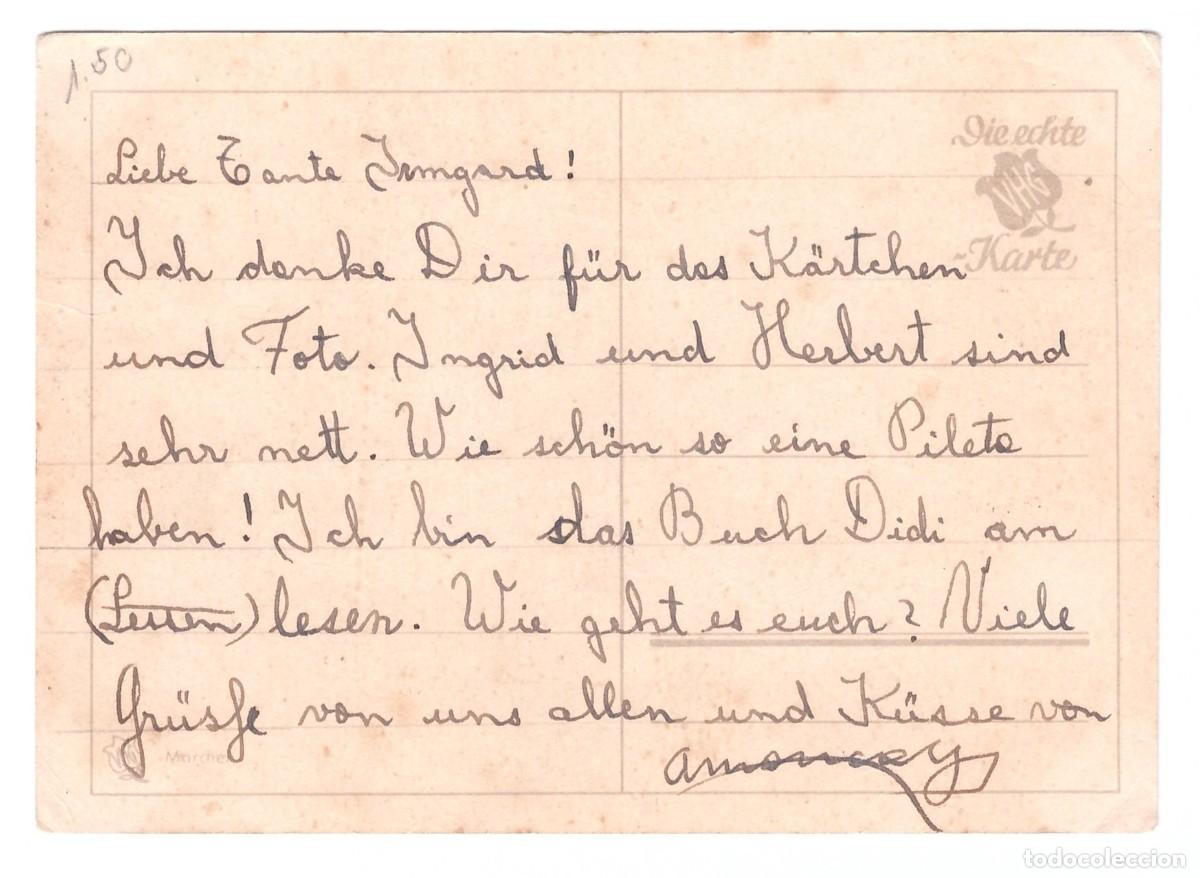 1.50
Die echte
VHG
-Karte
Liebe Tante Irmgard!
Ich danke Dir für das Kärtchen
und Foto. Ingrid und Herbert sind
sehr nett. Wie schön so eine Pileta
haben! Ich bin das Buch Didi am
(Lessen) lesen. Wie geht es euch? Viele
Grüsse von uns allen und Küsse von
Märchen
todocoleccion